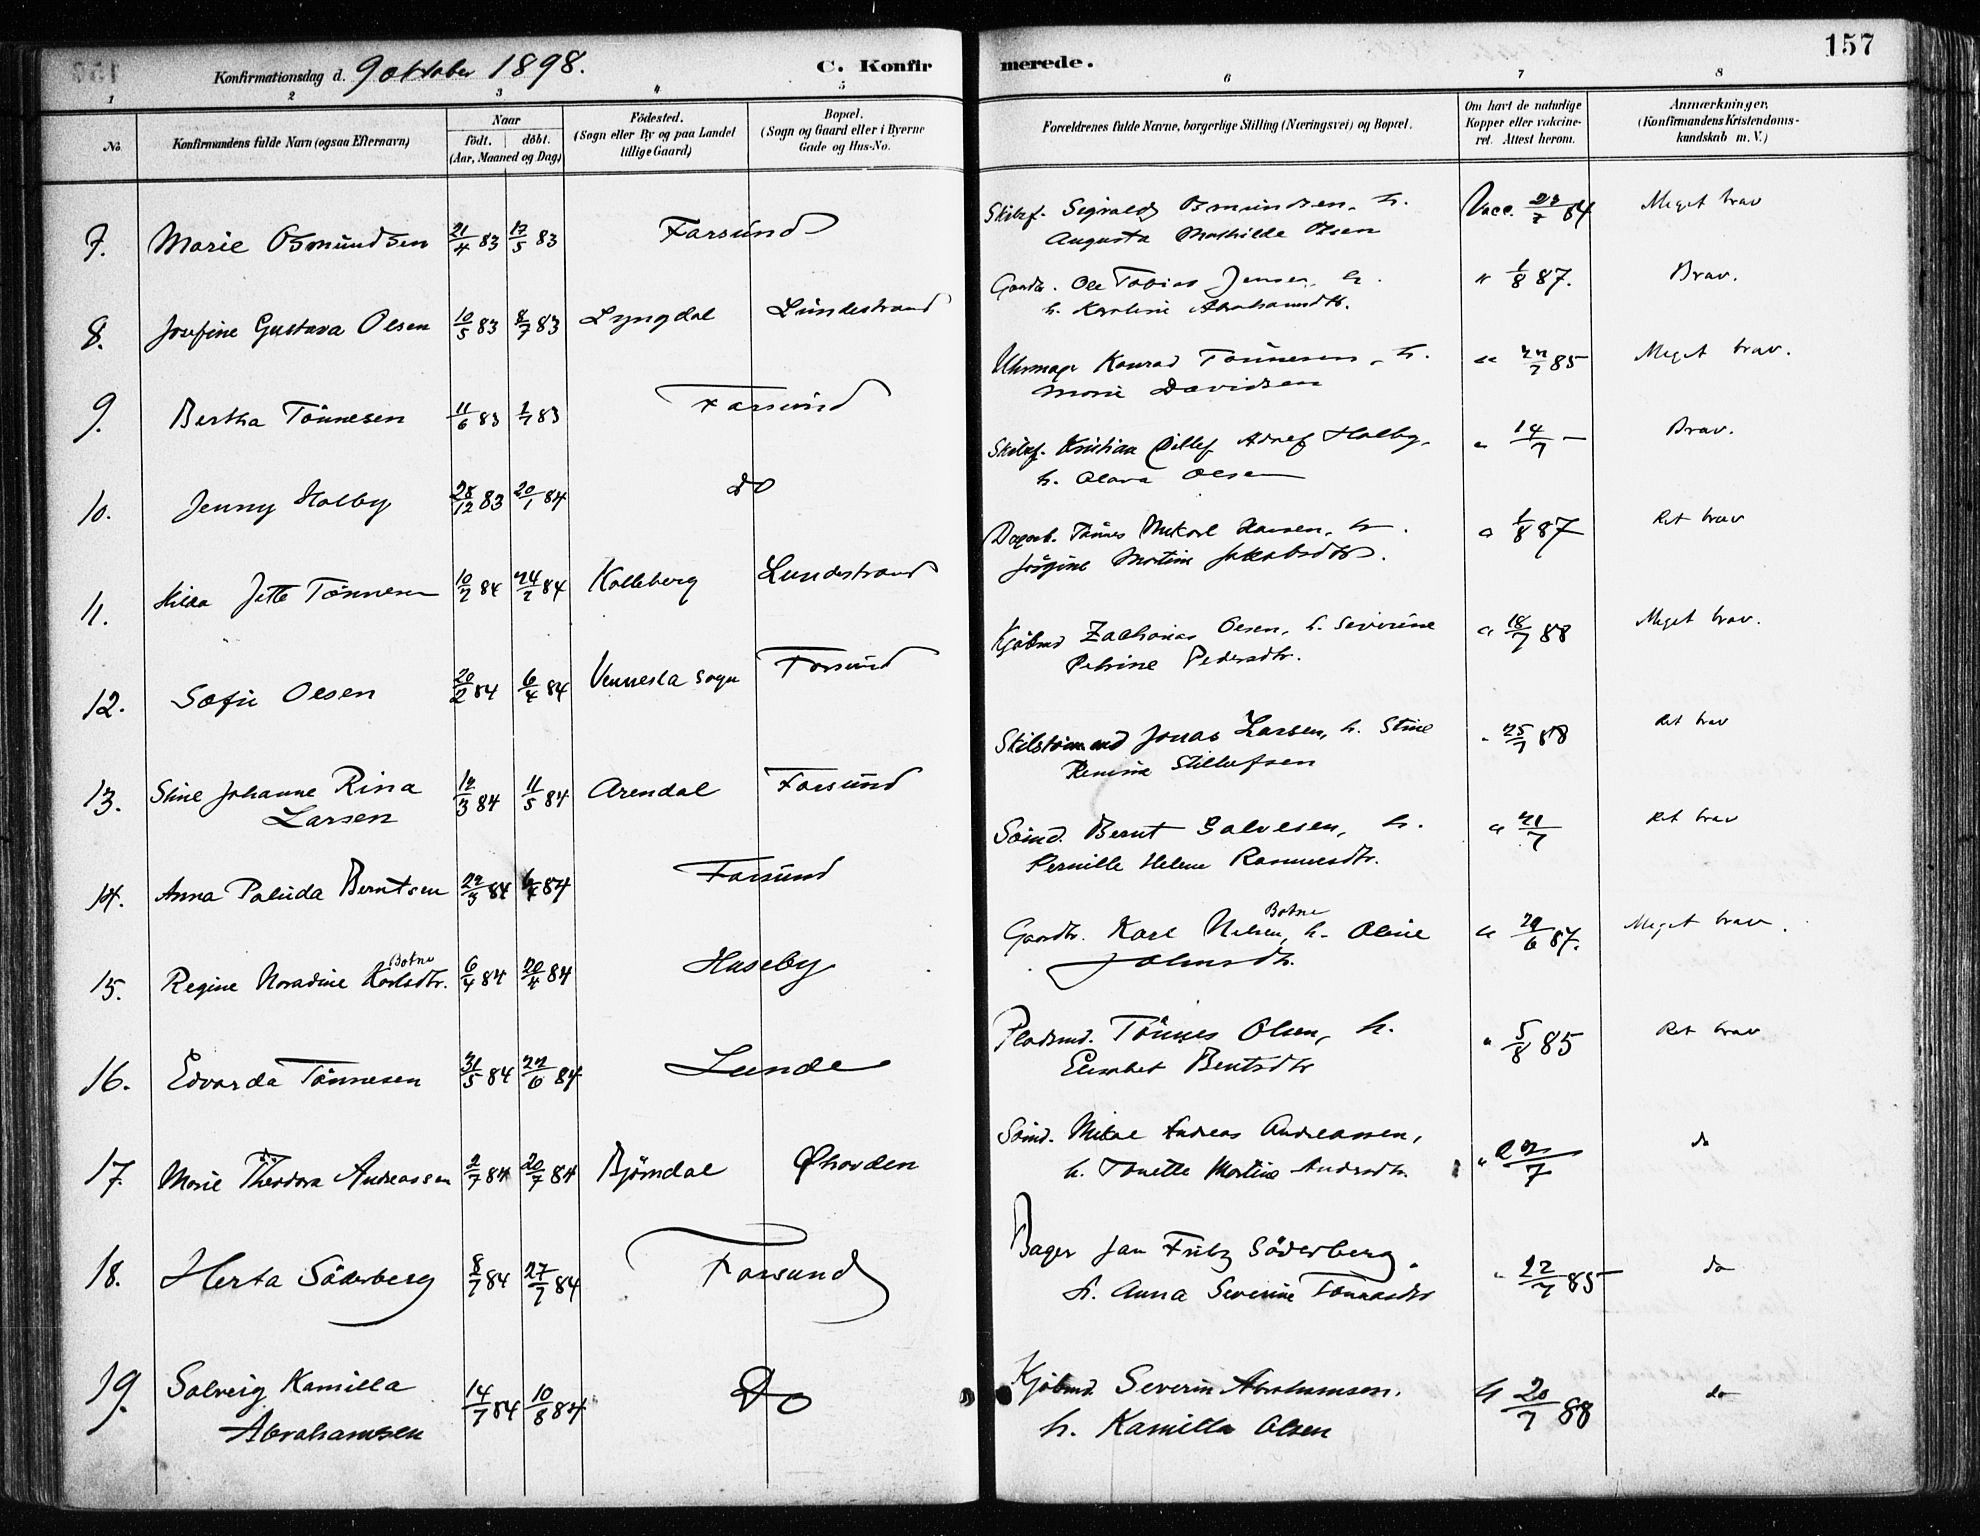 157
Konfirmationsdag d. 9 oktober 1898.
C. Konfirmerede.
1 2 3 4 5 6 7 8
No.
Konfirmandens fulde Navn (ogsaa Efternavn)
Naar
födt. döbt.
(Aar, Maaned og Dag)
Födested.
(Sogn eller By og paa Landet
tillige Gaard)
Bopæl.
(Sogn og Gaard eller i Byerne
Gade og Hus-No.
Forældrenes fulde Navne, borgerlige Stilling (Næringsvei) og Bopæl.
Om havt de naturlige
Kopper eller vakcine-
ret. Attest herom.
Anmærkninger,
(Konfirmandens Kristendoms-
kundskab m. V.)
7. Marie Osmundsen 21/4 83 13/5 83 Farsund Skibsf. Sigvald Osmundsen, h. Vacc. 84 Meget brav
Augusta Mathilde Olsen
8. Josefine Gustava Olsen 10/5 83 8/7 83 Lyngdal Lundestrand Gaardb. Ole Tobias Jensen, h. " 1/8 87. Brav.
h. Karoline Abrahamsdtr.
9. Bertha Tönnesen 11/6 83 1/7 83 Farsund Uhrmager Konrad Tönnesen, h. " 22/7 85 Meget brav.
Marie Davidsen
10. Jenny Holby 28/12 83 20/1 84 do Skibsf. Kristian Ditlef Adolf Holby, " 14/7 — Brav.
h. Olava Olsen
11. Hilda Jette Tönnesen 10/2 84 24/2 84 Kalleberg Lundestrand Dagarb. Tönnes Mikael Hansen, h. " 1/8 87 Ret brav
Jörgine Martine Jakobsdtr.
12. Sofie Olsen 20/2 84 6/4 84 Vennesla sogn Farsund Kjöbmd Zacharias Olsen, h. Severine " 18/7 88 Meget brav.
Petrine Pedersdtr.
13. Stine Johanne Rina 12/3 84 11/5 84 Arendal Farsund Skilstömmd Jonas Larsen, h. Stine " 25/7 88 Ret brav
Larsen
14. Anna Palida Berntsen 22/3 84 84 Farsund Sömd. Bernt Salvesen, h. " 21/7 Ret brav
Pernille Helene Rasmusdtr.
15. Regine Noradine Karlsdtr. Botne 6/4 84 20/4 84 Huseby Gaardbr. Karl Nilsen Botne, h. Oline " 29/6 87. Meget brav.
16. Edvarda Tönnesen 31/5 84 22/6 84 Lunde Pladsmd. Tönnes Olsen, h. " 5/8 85 Ret brav
Elisabet Bentsdtr
17. Marie Theodora Andreassen 2/7 84 20/7 84 Björndal Sömd. Mikal Andreas Andreassen, " 22/7 do
h. Tonette Martine Andersdtr.
18. Herta Söderberg 8/7 84 27/7 84 Farsund Bager Jan Fritz Söderberg, " 22/7 85 do
h. Anna Severine Tönnesdtr
19. Solveig Kamilla 14/7 84 10/8 84 Do Kjöbmd. Severin Abrahamsen. " 20/7 88 do
Abrahamsen h. Kamilla Olsen